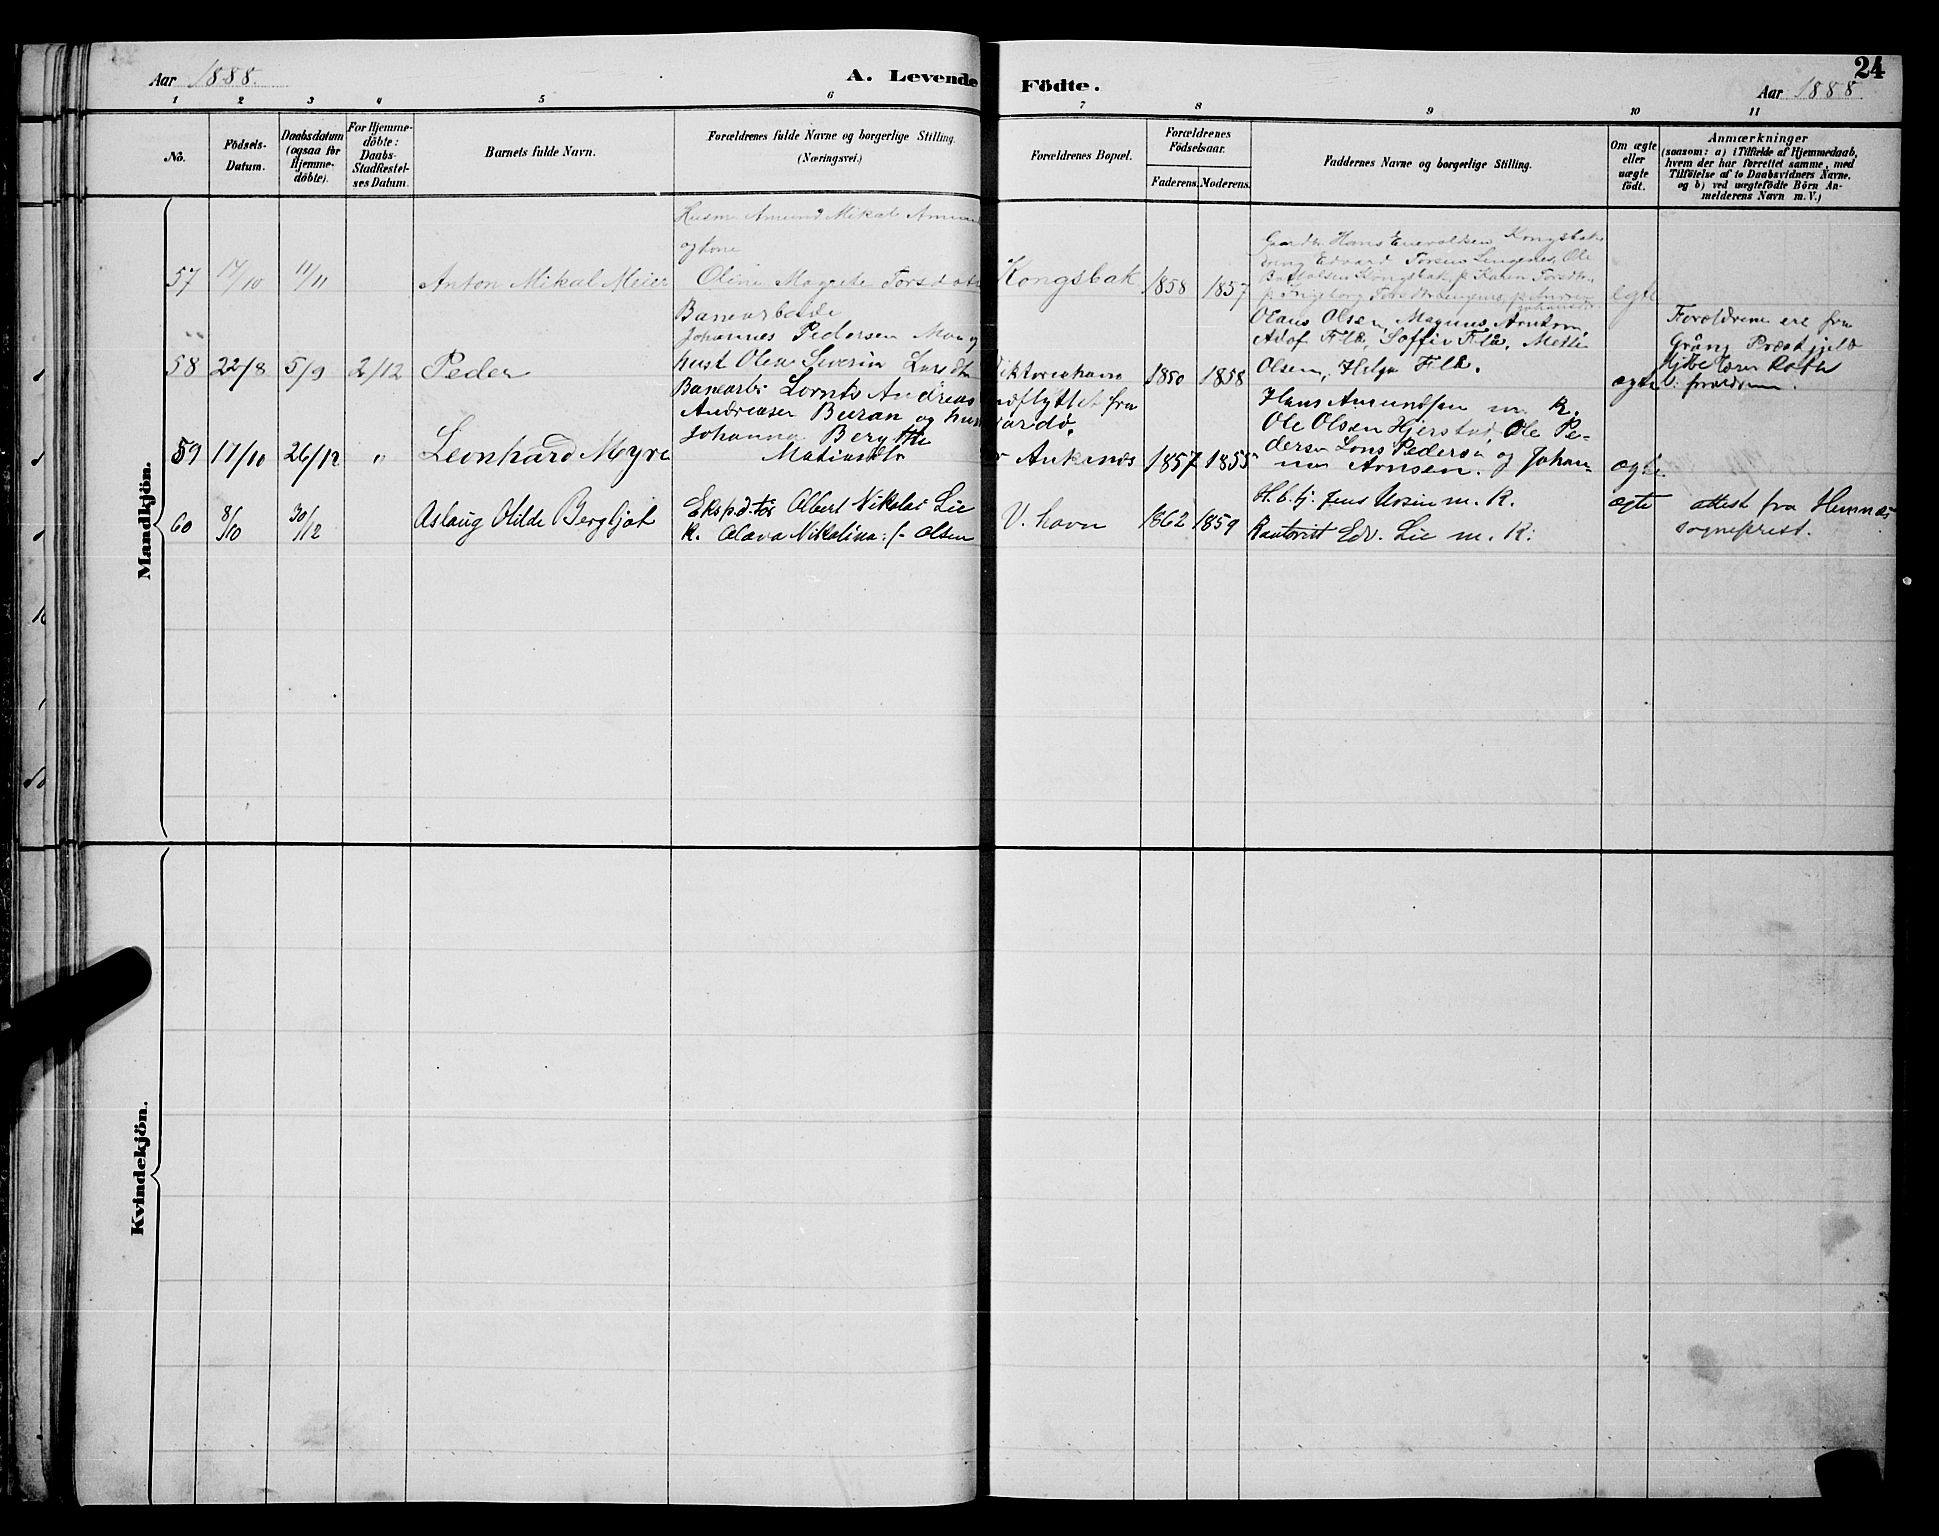 Aar 1888.
A. Levende Födte.
24
Aar 1888
1 2 3 4 5 6 7 8 9 10 11
No.
Födsels-
Datum.
Daabsdatum
(ogsaa for
Hjemme-
döbte).
For Hjemme-
döbte:
Daabs-
Stadfæstel-
ses Datum.
Barnets fulde Navn.
Forældrenes fulde Navne og borgerlige Stilling.
(Næringsvei.)
Forældrenes Bopæl.
Forældrenes
Födselsaar.
Faderens. Moderens.
Faddernes Navne og borgerlige Stilling.
Om ægte
eller
uægte
födt.
Anmærkninger
(saasom: a) i Tilfælde af Hjemmedaab,
hvem der har forrettet samme, med
Tilföielse af to Daabsvidners Navne,
og b) ved uægtefödte Börn An-
melderens Navn m.V.)
Mandkjön.
57
11/11
Anton Mikal Meier
Husm Amund Mikal
og kone
Oline Magrete Torsdatr
Kongsbak
1858
1857
Hans Kongsbak
Edvard Torsen Ole
Kongsbak, Karen Torsdtr
Ingeborg
egte
58
22/8
5/9
2/12
Peder
Banearbeide
Johannes Pedersen Moe og
hust Olea Severin Larsdtr
Viktoriahavn
1850
1858
Olaus Olsen, Magnus
Flå, Soffie Flå, Mette
Olsen, Helga Flå.
ægte
Forældrene ere fra
Grång Præstgjeld
forældrene.
59
17/10
26/12
"
Leonhard Myre
Banearb. Lornts Andreas
Andreasen Buran og hust
Johanna Bergitte
Matiasdtr
indflyttet fra
Vardö.
Ankenæs
1857
1855
Hans Amundsen m. K.
Ole Olsen Hjerstad, Ole Pe-
dersen Lons Pedersen og Johan-
nes Arnsen.
ægte
60
8/10
30/12
Aslaug Otilde Bergljot
Ekspd.tör Albert Nikolai Lie
K. Olava Nikolina f. Olsen
V. havn
1862
1859
H.b.hj. Jens Ursin m. K.
Edv. Lie m. K.
ægte
attest fra Hemnæs
sogneprest.
Kvindekjön.